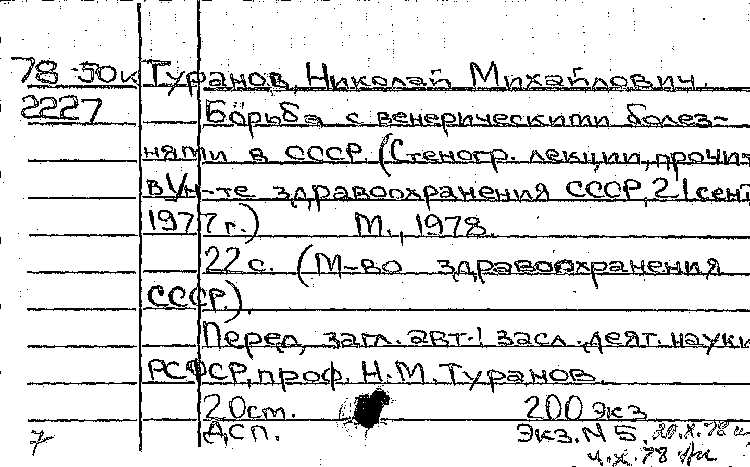 78-50к Туранов, Николай Михайлович.
2227 Борьба с венерическими болез-
нями в СССР. (Стеногр. лекции, прочит.
в Ун-те здравоохранения СССР, 21 сент.
1977 г.) М., 1978.
22 с. (М-во здравоохранения
СССР.).
Перед. загл. авт.: засл. деят. науки
РСФСР, проф. Н.М. Туранов.
20 ст. 200 экз
ДСП. Экз. N 5. 20.X.78
7 4.X.78